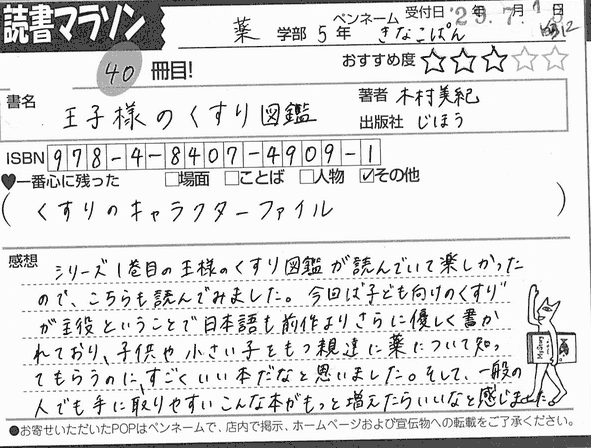 読書マラソン
薬 学部 5年 ペンネーム きなこぱん 受付日 '25年 7月 1日
40 冊目!
おすすめ度 ★★★☆☆
書名 王子様のくすり図鑑
著者 木村美紀
出版社 じほう
ISBN 978-4-8407-4909-1
♥一番心に残った □場面 □ことば □人物 ☑その他
(くすりのキャラクターファイル)
感想 シリーズ1巻目の王様のくすり図鑑が読んでいて楽しかった
ので、こちらも読んでみました。今回は子ども向けのくすり
が主役ということで日本語も前作よりさらに優しく書か
れており、子供や小さい子をもつ親達に薬について知っ
てもらうのに、すごくいい本だなと思いました。そして、一般の
人でも手に取りやすいこんな本がもっと増えたらいいなと感じました。
●お寄せいただいたPOPはペンネームで、店内で掲示、ホームページおよび宣伝物への転載をご了承ください。